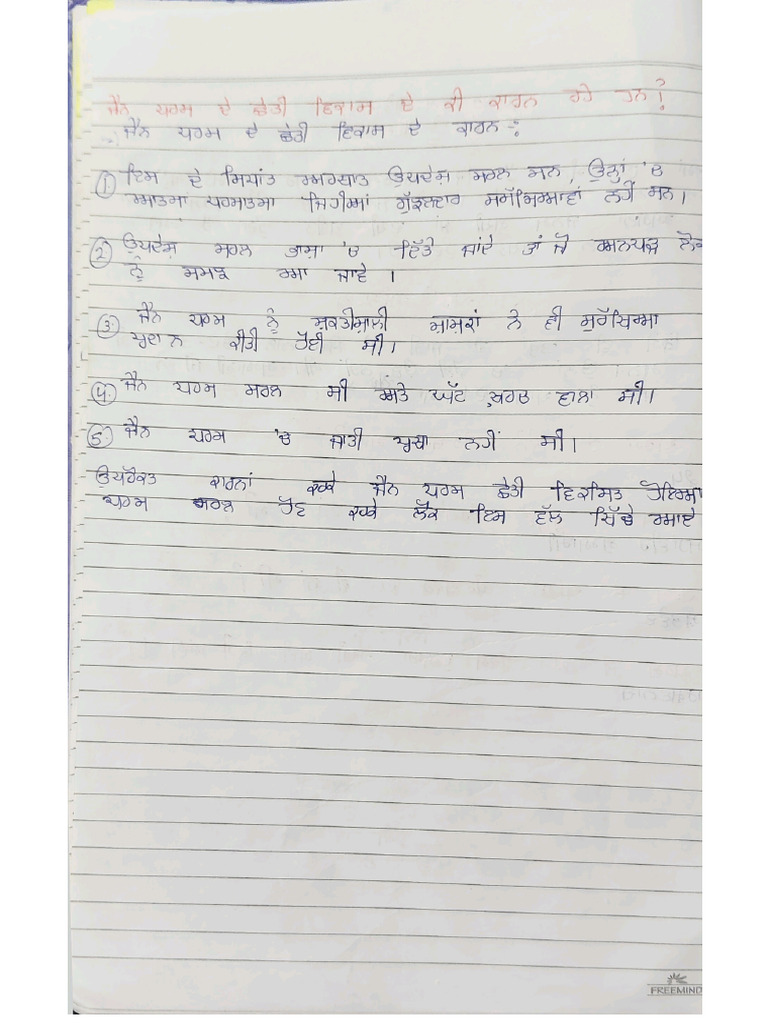 ਜੈਨ ਧਰਮ ਦੇ ਛੇਤੀ ਵਿਕਾਸ ਦੇ ਕੀ ਕਾਰਨ ਰਹੇ ਹਨ?
ਜੈਨ ਧਰਮ ਦੇ ਛੇਤੀ ਵਿਕਾਸ ਦੇ ਕਾਰਨ -:
1. ਇਸ ਦੇ ਸਿਧਾਂਤ ਅਰਥਾਤ ਉਪਦੇਸ਼ ਸਰਲ ਸਨ, ਉਨ੍ਹਾਂ 'ਚ
ਆਤਮਾ ਪਰਮਾਤਮਾ ਜਿਹੀਆਂ ਗੁੰਝਲਦਾਰ ਸਮੱਸਿਆਵਾਂ ਨਹੀਂ ਸਨ।
2. ਉਪਦੇਸ਼ ਸਰਲ ਭਾਸ਼ਾ 'ਚ ਦਿੱਤੇ ਜਾਂਦੇ ਤਾਂ ਜੋ ਅਨਪੜ੍ਹ ਲੋਕ
ਨੂੰ ਸਮਝ ਆ ਜਾਵੇ ।
3. ਜੈਨ ਧਰਮ ਨੂੰ ਸ਼ਕਤੀਸ਼ਾਲੀ ਸ਼ਾਸ਼ਕਾਂ ਨੇ ਵੀ ਸੁਰੱਖਿਆ
ਪ੍ਰਦਾਨ ਕੀਤੀ ਹੋਈ ਸੀ।
4. ਜੈਨ ਧਰਮ ਸਰਲ ਸੀ ਅਤੇ ਘੱਟ ਖ਼ਰਚ ਵਾਲਾ ਸੀ।
5. ਜੈਨ ਧਰਮ 'ਚ ਜਾਤੀ ਪ੍ਰਥਾ ਨਹੀਂ ਸੀ।
ਉਪਰੋਕਤ ਕਾਰਨਾਂ ਕਰਕੇ ਜੈਨ ਧਰਮ ਛੇਤੀ ਵਿਕਸਿਤ ਹੋਇਆ
ਧਰਮ ਸਰਲ ਹੋਣ ਕਰਕੇ ਲੋਕ ਇਸ ਵੱਲ ਖਿੱਚੇ ਆਏ
FREEMIND